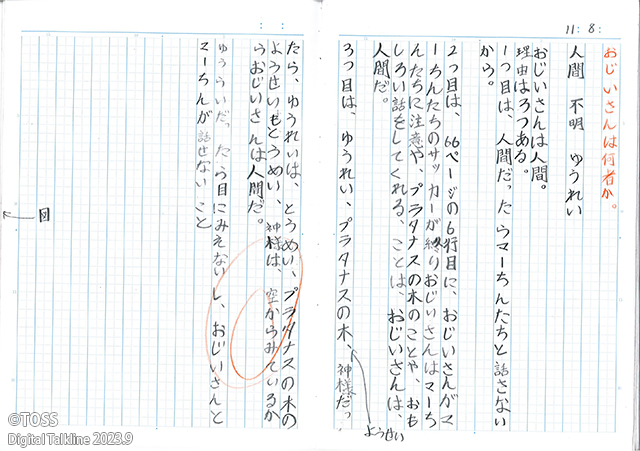 11:8:
おじいさんは何者か。
人間 不明 ゆうれい
おじいさんは人間。
理由は3つある。
1つ目は、人間だったらマーちんたちと話さない
から。
2つ目は、66ページの6行目に、おじいさんがマ
ーちんたちのサッカーが終りおじいさんはマーち
んたちに注意や、プラタナスの木のことや、おも
しろい話をしてくれる、ことは、おじいさんは、
人間だ。
3つ目は、ゆうれい、プラタナスの木、神様だっ
ようせい
たら、ゆうれいは、とうめい、プラタナスの木の
ようせいもとうめい、神様は、空からみているか
らおじいさんは人間だ。
ゆうらいだったら目にみえないし、おじいさんと
マーちんが話せないこと
図
©TOSS
Digital Talkline 2023.9